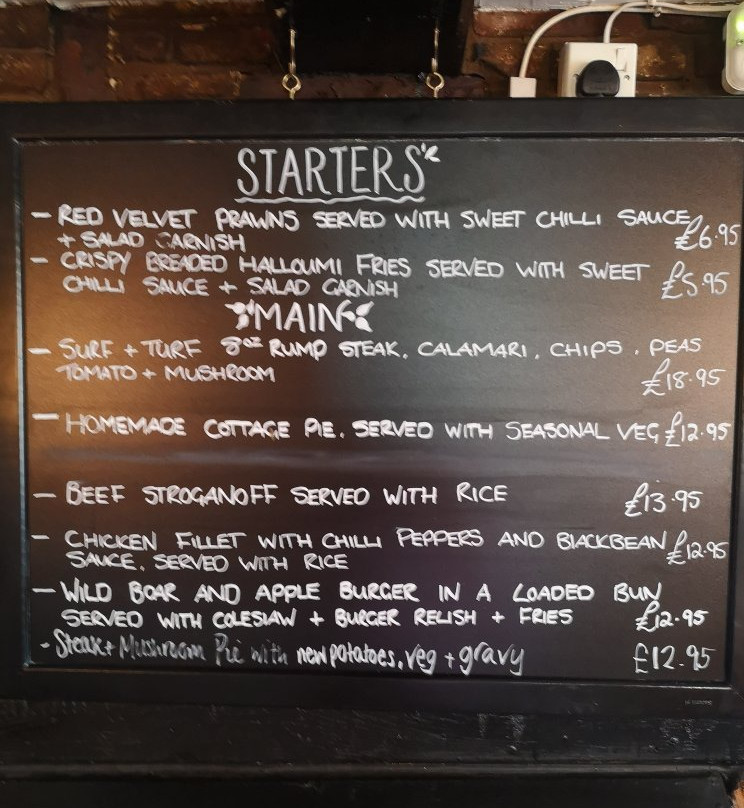 STARTERS
- RED VELVET PRAWNS SERVED WITH SWEET CHILLI SAUCE
+ SALAD GARNISH £6.95
- CRISPY BREADED HALLOUMI FRIES SERVED WITH SWEET
CHILLI SAUCE + SALAD GARNISH £5.95
MAIN
- SURF + TURF 8oz RUMP STEAK, CALAMARI, CHIPS, PEAS
TOMATO + MUSHROOM £18.95
- HOMEMADE COTTAGE PIE. SERVED WITH SEASONAL VEG £12.95
- BEEF STROGANOFF SERVED WITH RICE £13.95
- CHICKEN FILLET WITH CHILLI PEPPERS AND BLACKBEAN £12.95
SAUCE. SERVED WITH RICE
- WILD BOAR AND APPLE BURGER IN A LOADED BUN
SERVED WITH COLESLAW + BURGER RELISH + FRIES £12.95
- Steak + Mushroom Pie with new potatoes, veg + gravy £12.95